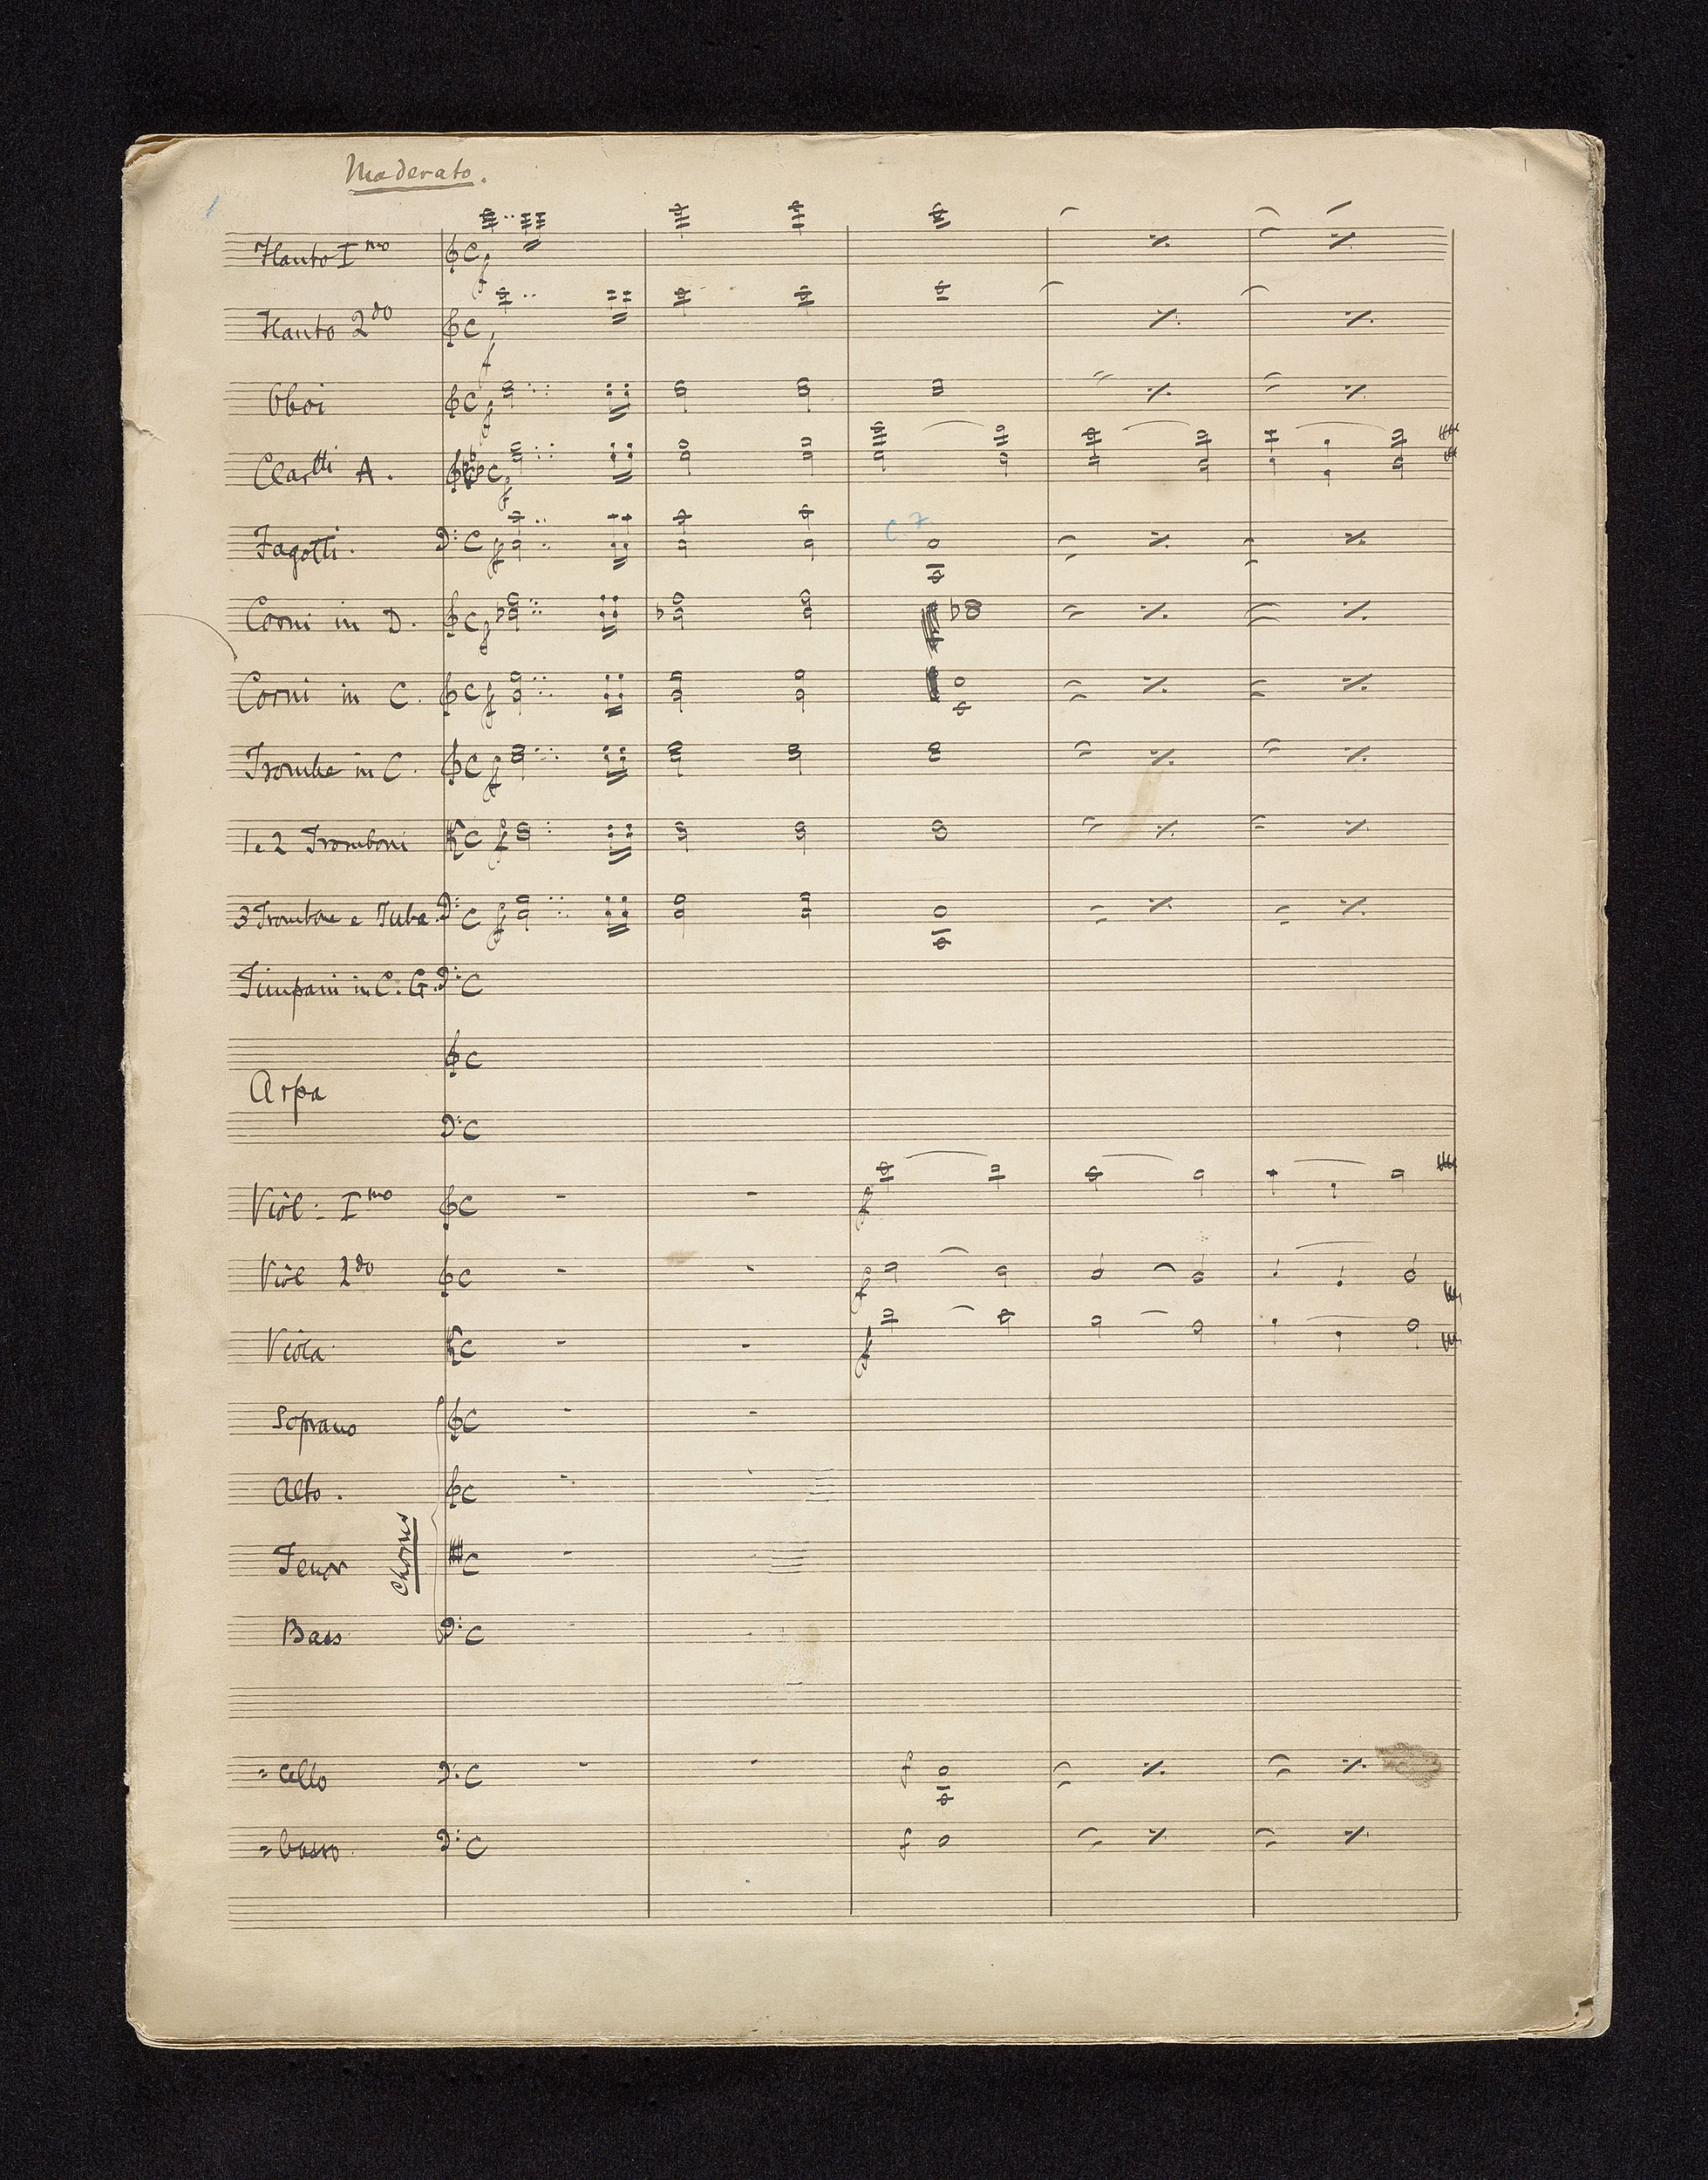 Moderato.
1
Flauto Imo
Flauto 2do
Oboi
Clartti A.
Fagotti.
C 7
Corni in D.
Corni in C.
Trombe in C.
1 e 2 Tromboni
3 Trombone e Tuba.
Timpani in C. G.
Arpa
Viol: Imo
Viol 2do
Viola
Soprano
Alto.
Chorus
Tenor
Bass
= cello
= basso.